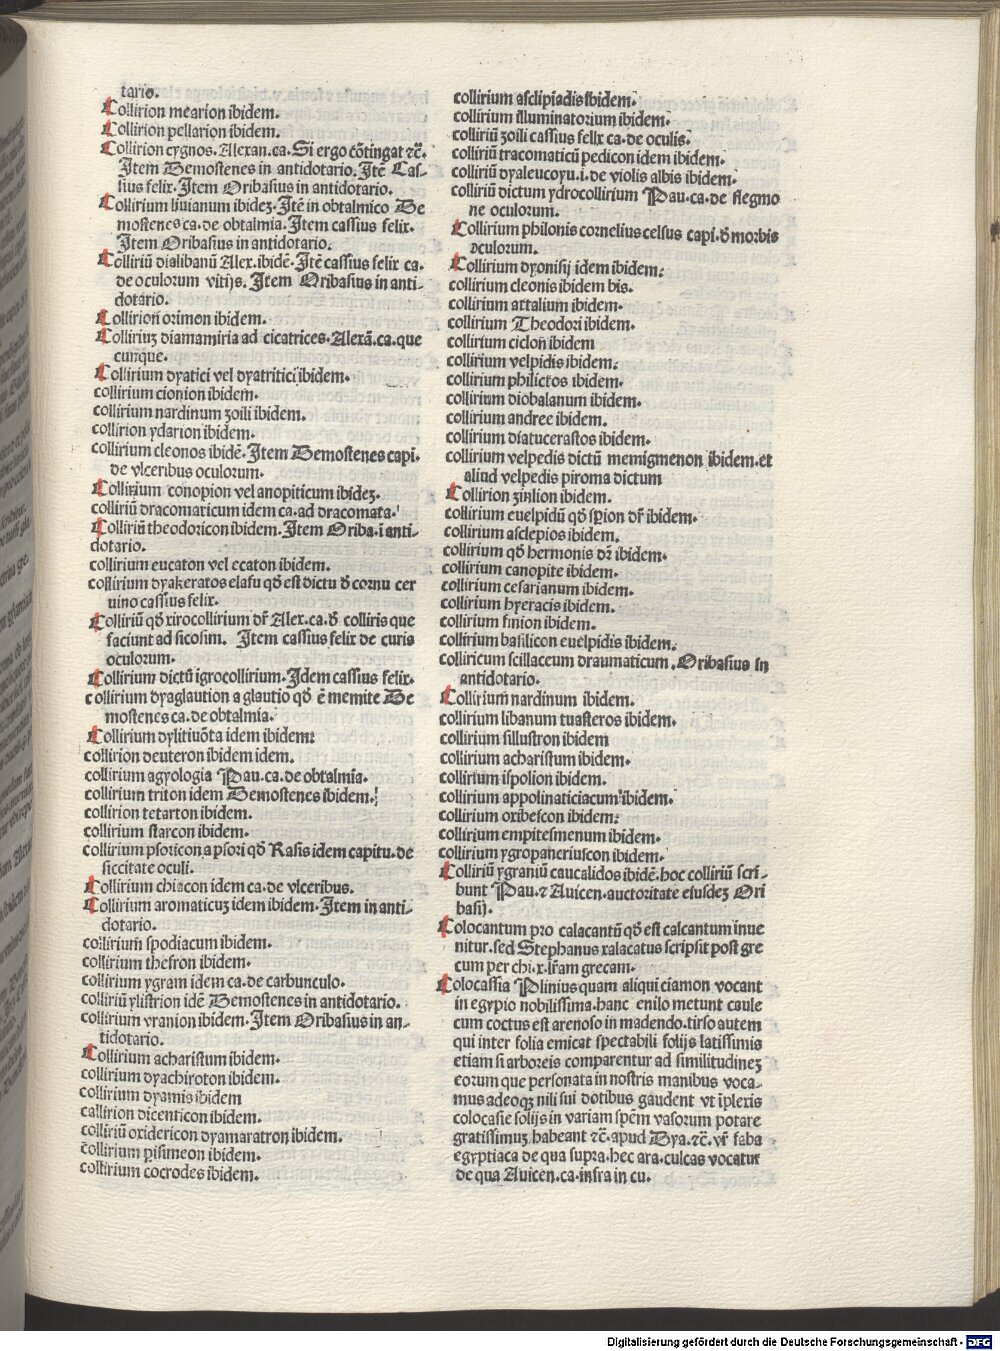 tario.
Collirion mearion ibidem.
Collirion pellarion ibidem.
Collirion cygnos. Alexan. ca. Si ergo cōtingat ⁊c̄.
Item Demostenes in antidotario. Itē Cas-
sius felix. Item Oribasius in antidotario.
Collirium liuianum ibideꝫ. Itē in obtalmico De
mostenes ca. de obtalmia. Item cassius felix.
Item Oribasius in antidotario.
Colliriū dialibanū Alex. ibidē. Itē cassius felix ca.
de oculorum vitijs. Item Oribasius in anti-
dotario.
Collirion orimon ibidem.
Colliriuꝫ diamamiria ad cicatrices. Alexā. ca. que
cunque.
Collirium dyatici vel dyatritici ibidem.
collirium cionion ibidem.
collirium nardinum zoili ibidem.
collirion ydarion ibidem.
collirium cleonos ibidē. Item Demostenes capi.
de vlceribus oculorum.
Collirium conopion vel anopiticum ibideꝫ.
colliriū dracomaticum idem ca. ad dracomata.
Colliriū theodoricon ibidem. Item Oriba. i anti-
dotario.
collirium eucaton vel ecaton ibidem.
collirium dyakeratos elafu qđ est dictu đ cornu cer
uino cassius felix.
Colliriū qđ xirocollirium dr̄ Alex. ca. đ colliris que
faciunt ad sicosim. Item cassius felix de curis
oculorum.
Collirium dictū igrocollirium. Idem cassius felix.
collirium dyaglaution a glautio qđ ē memite De
mostenes ca. de obtalmia.
Collirium dylitiuōta idem ibidem:
collirion deuteron ibidem idem.
collirium agyologia Pau. ca. de obtalmia.
collirium triton idem Demostenes ibidem.
collirion tetarton ibidem.
collirium starcon ibidem.
collirium psoricon a psori qđ Rasis idem capitu. de
siccitate oculi.
Collirium chiacon idem ca. de vlceribus.
Collirium aromaticuꝫ idem ibidem. Item in anti-
dotario.
collirium spodiacum ibidem.
collirium thefron ibidem.
collirium ygram idem ca. de carbunculo.
colliriū ylistrion idē Demostenes in antidotario.
collirium vranion ibidem. Item Oribasius in an-
tidotario.
Collirium acharistum ibidem.
collirium dyachiroton ibidem.
collirium dyamis ibidem
callirion dicenticon ibidem.
colliriū oxidericon dyamaratron ibidem.
collirium pisimeon ibidem.
collirium cocrodes ibidem.
collirium asclipiadis ibidem.
collirium illuminatorium ibidem.
colliriū zoili cassius felix ca. de oculis.
colliriū tracomaticū pedicon idem ibidem.
colliriū dyaleucoyu. i. de violis albis ibidem.
colliriū dictum ydrocollirium Pau. ca. de flegmo
ne oculorum.
Collirium philonis cornelius celsus capi. đ morbis
oculorum.
Collirium dyonisij idem ibidem:
collirium cleonis ibidem bis.
collirium attalium ibidem.
collirium Theodori ibidem.
collirium ciclon ibidem
collirium velpidis ibidem:
collirium philictos ibidem.
collirium diobalanum ibidem.
collirium andree ibidem.
collirium diatucerastos ibidem.
collirium velpedis dictū memigmenon ibidem. et
aliud velpedis piroma dictum
Collirion zinlion ibidem.
collirium euelpidū qđ sprion dr̄ ibidem.
collirium asclepios ibidem.
collirium qđ hermonis dr̄ ibidem.
collirium canopite ibidem.
collirium cesarianum ibidem.
collirium hyeracis ibidem.
collirium finion ibidem.
collirium basilicon euelpidis ibidem:
colliricum scillaceum draumaticum. Oribasius in
antidotario.
Collirium nardinum ibidem.
collirium libanum tuasteros ibidem.
collirium sillustron ibidem
collirium acharistum ibidem.
collirium ispolion ibidem.
collirium appolinaticiacum ibidem.
collirium oxibescon ibidem:
collirium empitesmenum ibidem.
collirium ygropancriuscon ibidem.
Colliriū ygraniū caucalidos ibidē. hoc colliriū scri-
bunt Pau. ⁊ Auicen. auctoritate eiusdeꝫ Ori
basij.
Colocantum pro calacantū qđ est calcantum inue
nitur. sed Stephanus xalacatus scripsit post gre
cum per chi. x. lr̄am grecam.
Colocassia Plinius quam aliqui ciamon vocant
in egypto nobilissima. hanc enilo metunt caule
cum coctus est arenoso in madendo. tirso autem
qui inter folia emicat spectabili folijs latissimis
etiam si arboreis comparentur ad similitudineꝫ
eorum que personata in nostris manibus voca-
mus adeoqꝫ nili sui dotibus gaudent vt īplexis
colocasie folijs in variam spēm vasorum potare
gratissimuꝫ habeant ⁊c̄. apud Dya. ⁊c̄. vr̄ faba
egyptiaca de qua supra. hec ara. culcas vocatur
de qua Auicen. ca. infra in cu.
Digitalisierung gefördert durch die Deutsche Forschungsgemeinschaft - DFG